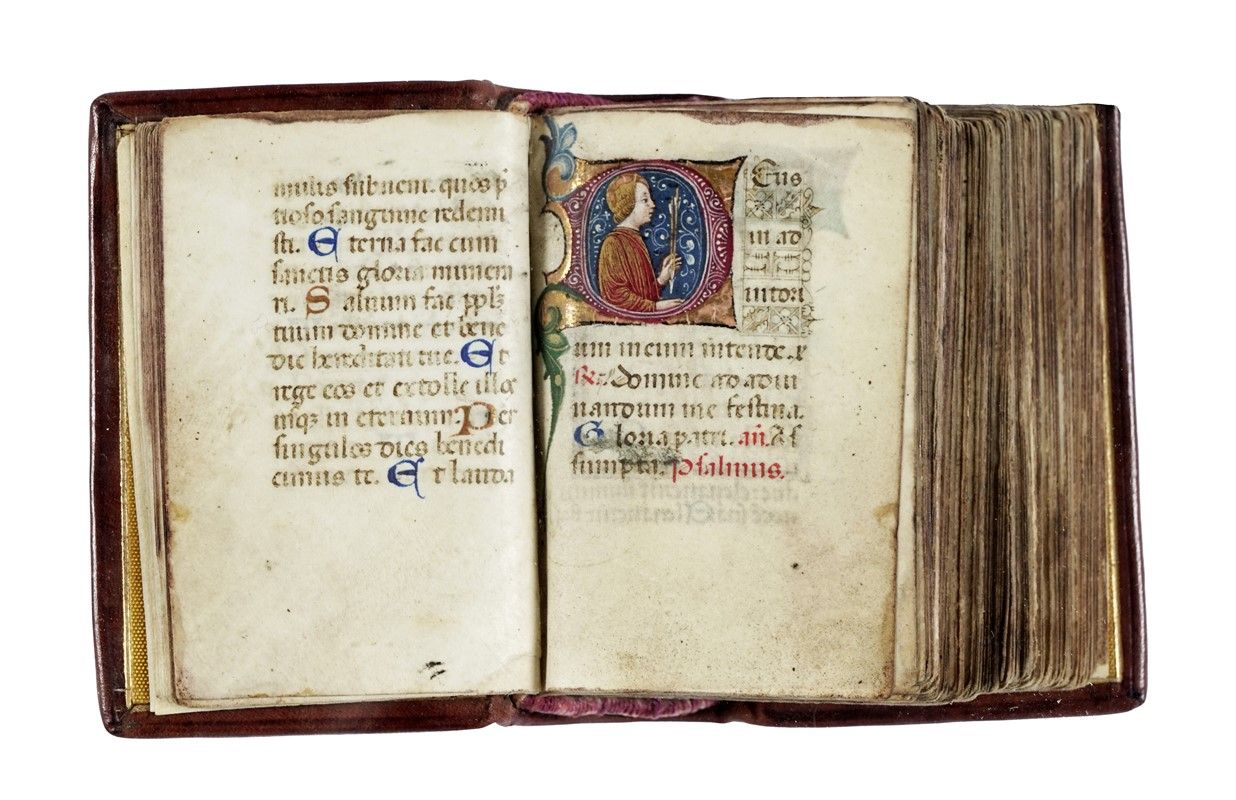 mulis subueni. quos p̄
tioso sanguine redemi
sti. Eterna fac cum
sanctis gloria numera
ri. Saluum fac ppl̄ʒ
tuum domine et bene
dic hereditati tue. Et
rege eos et extolle illos
usqʒ in eternum. Per
singulos dies benedi
cimus te. Et lauda
Deus
in ad
iutori
um meum intende. e
℟. Domine ad adiu
uandum me festina.
Gloria patri. an̄. As
sumpta. Psalmus.